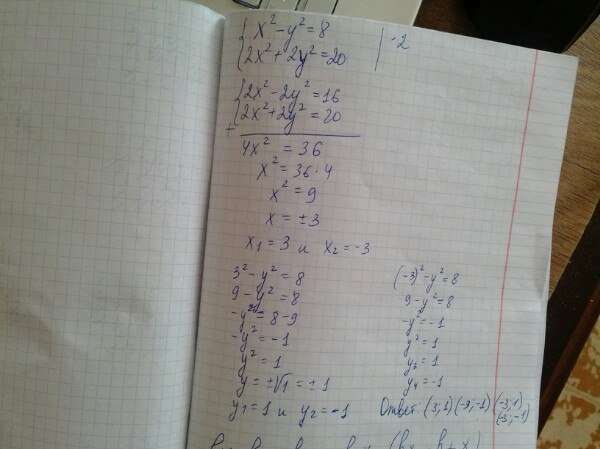 { x² - y² = 8 | ·2
{ 2x² + 2y² = 20
{ 2x² - 2y² = 16
+ { 2x² + 2y² = 20
4x² = 36
x² = 36 · 4
x² = 9
x = ±3
x₁ = 3 и x₂ = -3
3² - y² = 8
9 - y² = 8
-y² = 8 - 9
-y² = -1
y² = 1
y = ±√1 = ±1
y₁ = 1 и y₂ = -1
(-3)² - y² = 8
9 - y² = 8
-y² = -1
y² = 1
y₃ = 1
y₄ = -1
Ответ: (3; 1) (-3; -1) (-3; 1)
(3; -1)